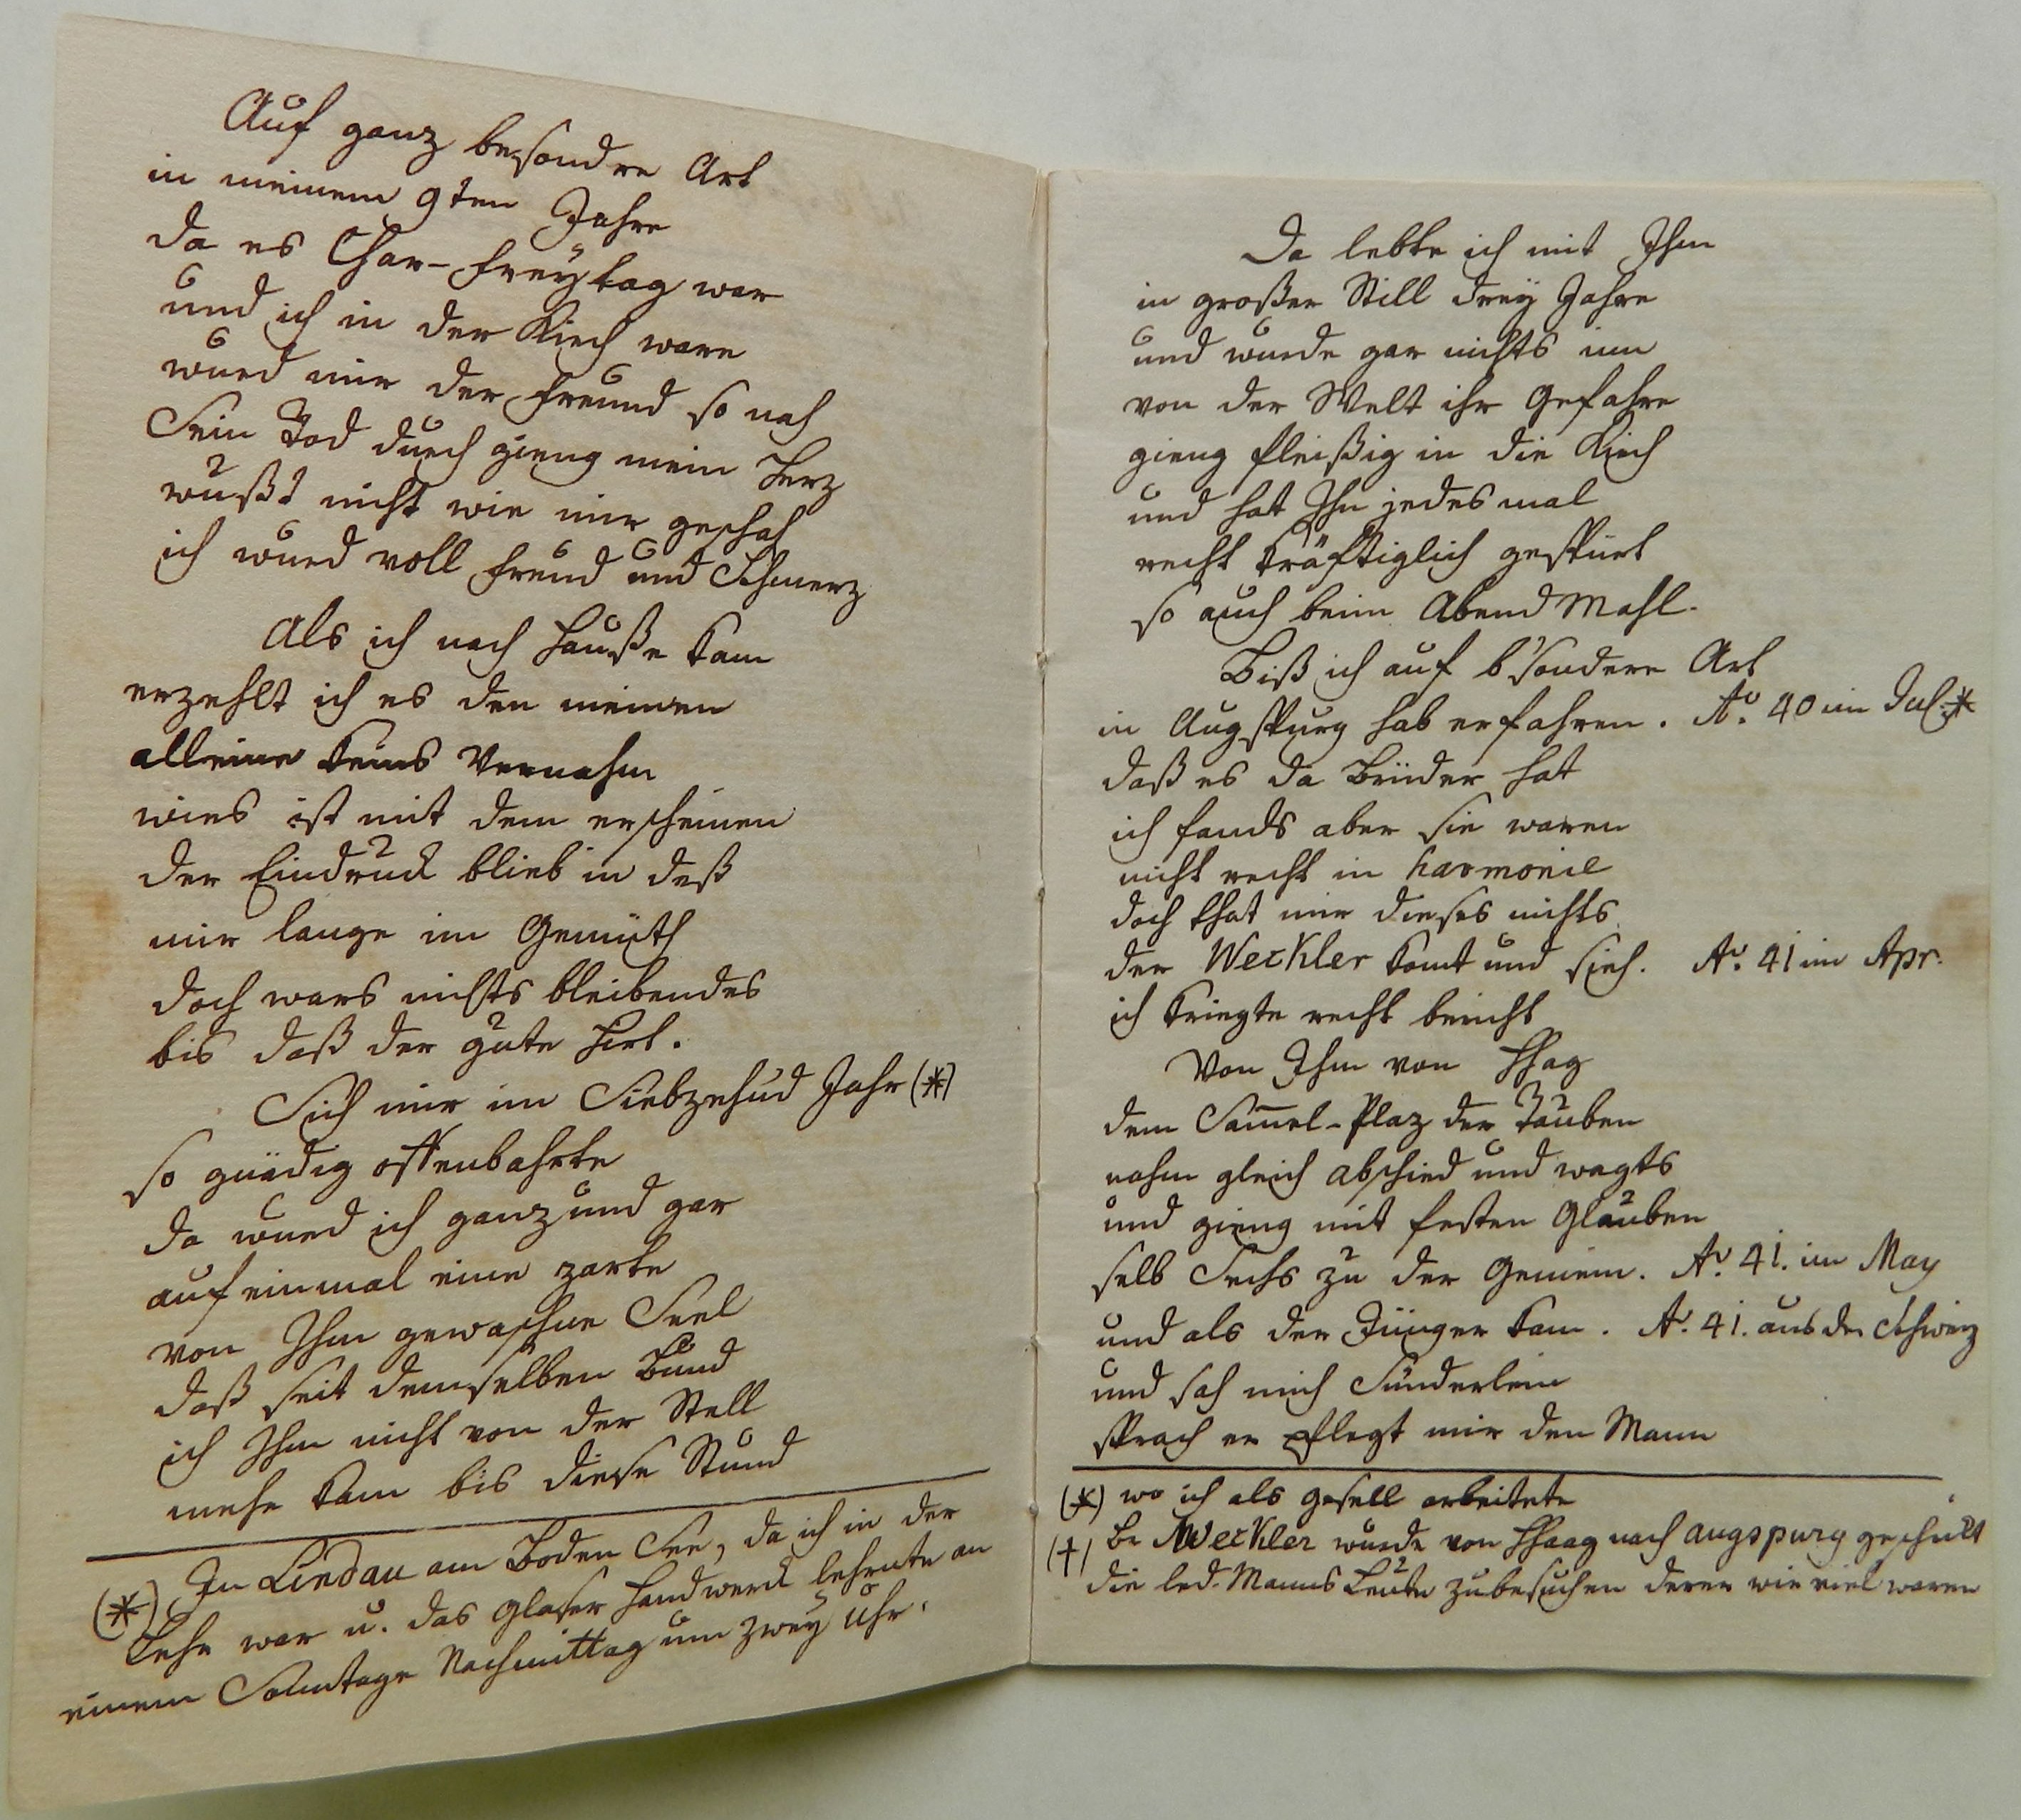 Auf ganz besondre Art
in meinem 9ten Jahre
da es Char-freÿtag war
und ich in der Kirch ware
wurd mir der freund so nah
Sein Tod durch gieng mein Herz
wußt nicht wie mir geschah
ich wurd voll freud und Schmerz
Als ich nach Hauße kam
erzehlt ich es den meinen
alleine keins Vernahm
wies ist mit dem erscheinen
der Eindruck blieb in deß
mir lange im Gemüth
doch wars nichts bleibendes
bis daß der gute Hirt.
Sich mir im Siebzehnd Jahr (*)
so gnädig offenbahrte
da wurd ich ganz und gar
auf einmal eine zarte
von Ihm gewaschne Seel
daß seit demselben Bund
ich Ihm nicht von der Stell
mehr kam bis diese Stund
(*) In Lindau am Boden See, da ich in der
Lehr war u. das Glaser Handwerck lehrnte an
einem Sonntage Nachmittag um zweÿ Uhr.
Da lebte ich mit Ihm
in großer Still dreÿ Jahre
und wurde gar nichts inn
von der Welt ihr Gefahre
gieng fleißig in die Kirch
und hat Ihn jedes mal
recht kräftiglich gespürt
so auch beim Abend Mahl.
Biß ich auf b'sondere Art
in Augspurg hab erfahren. Ao. 40 im Jul. *
daß es da Brüder hat
ich fands aber sie waren
nicht recht in harmonie
doch that mir dieses nichts
der Weckler komt und sieh. Ao. 41 im Apr.
ich kriegte recht bericht
Von Ihm von HHag
dem Sam̅el-Plaz der Tauben
nahm gleich abschied und wagts
und gieng mit festen Glauben
selb Sechs zu der Gemein. Ao. 41. im May
und als der Jünger kam. Ao. 41. aus der Schweiz
und sah mich Sünderlein
sprach er pflegt mir den Mann
(*) wo ich als Gesell arbeitete
(†) Br Weckler wurde von HHaag nach Augspurg geschickt
die led. Manns Leute zu besuchen derer wie viel waren